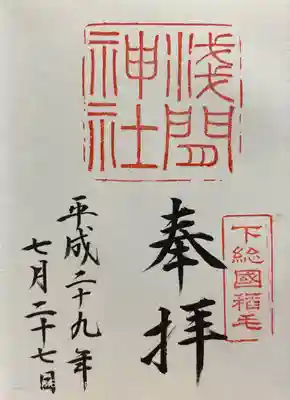 浅間
神社
下総國稻毛
奉拝
平成二十九年
七月二十七日